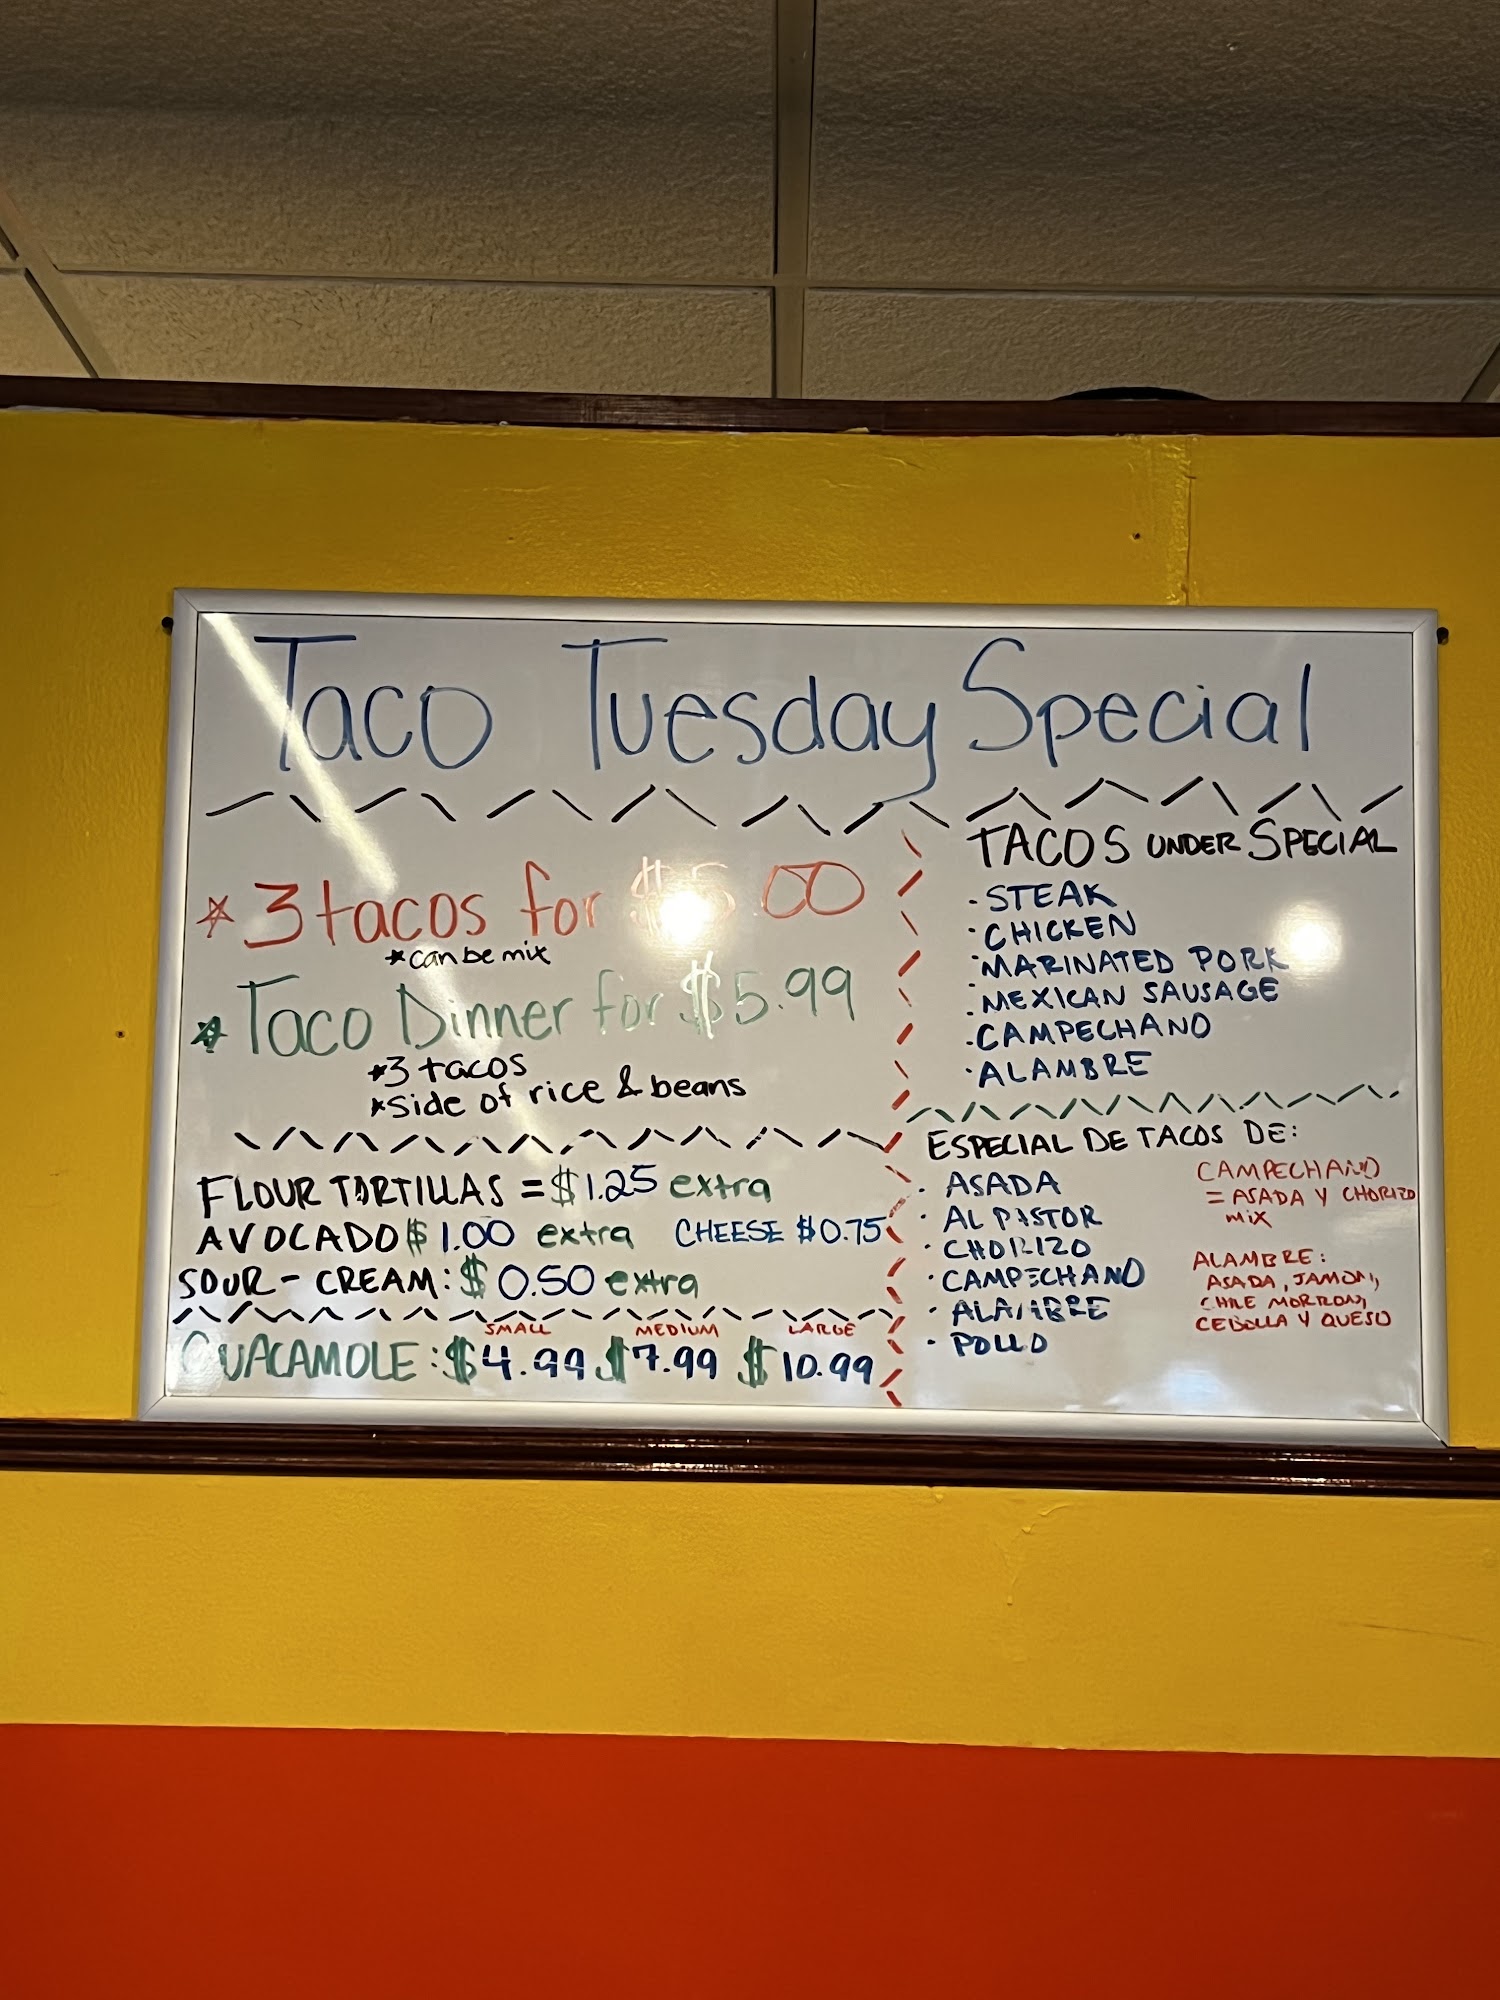 Taco Tuesday Special
* 3 tacos for $5.00
*can be mix
* Taco Dinner for $5.99
*3 tacos
*side of rice & beans
FLOUR TORTILLAS = $1.25 extra
AVOCADO $1.00 extra CHEESE $0.75
SOUR-CREAM: $0.50 extra
SMALL MEDIUM LARGE
GUACAMOLE: $4.99 $7.99 $10.99
TACOS UNDER SPECIAL
· STEAK
· CHICKEN
· MARINATED PORK
· MEXICAN SAUSAGE
· CAMPECHANO
· ALAMBRE
ESPECIAL DE TACOS DE:
· ASADA
· AL PASTOR
· CHORIZO
· CAMPECHANO
· ALAMBRE
· POLLO
CAMPECHANO
= ASADA Y CHORIZO
MIX
ALAMBRE:
ASADA, JAMON,
CHILE MORRON,
CEBOLLA Y QUESO